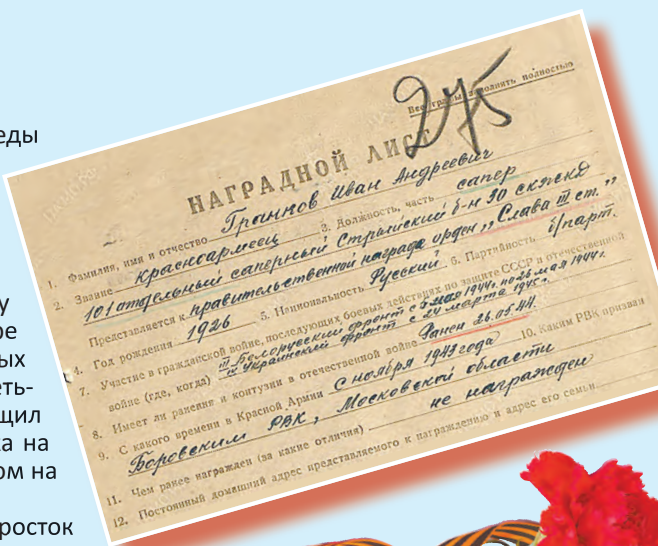 еды
у
ре
ых
еть-
щил
ка на
ом на
росток
275
Все графы заполнить полностью
НАГРАДНОЙ ЛИСТ
1. Фамилия, имя и отчество Граннов Иван Андреевич
2. Звание красноармеец 3. Должность, часть сапер
101 отдельный саперный Стрыйский б-н 30 скжкд
Представляется к правительственной награде орден „Слава III ст."
4. Год рождения 1926 5. Национальность Русский 6. Партийность б/парт.
7. Участие в гражданской войне, последующих боевых действиях по защите СССР и отечественной
войне (где, когда) III Белорусский фронт с 5 мая 1944г. по 26 мая 1944г.
IV Украинский фронт с 24 марта 1945г.
8. Имеет ли ранения и контузии в отечественной войне Ранен 26.05.44
9. С какого времени в Красной Армии с ноября 1943 года 10. Каким РВК призван
Боровским РВК, Московской области
11. Чем ранее награжден (за какие отличия) не награжден
12. Постоянный домашний адрес представляемого к награждению и адрес его семьи